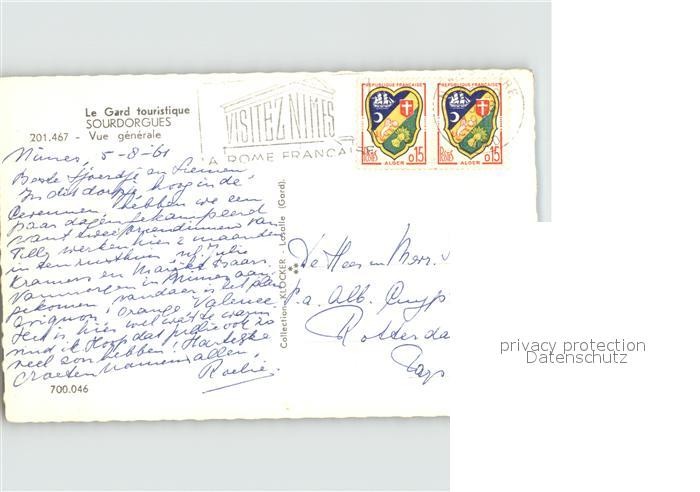 Le Gard touristique
SOURDORGUES
201.467 - Vue générale
VISITEZ NIMES
LA ROME FRANCAISE
REPUBLIQUE FRANÇAISE
POSTES 0,15
ALGER
REPUBLIQUE FRANÇAISE
POSTES 0,15
ALGER
Nimes, 5-8-61
Beste Sjoerdje en Siemen
In dit dorpje hoog in de
Cevennen hebben we een
paar dagen gekampeerd
want twee vriendinnen van
Tilly werken hier 2 maanden
in een rusthuis
en
Vanmorgen in Nimes aan
gekomen vandaar is het plan
Avignon, Orange Valence.
Het is hier wel wat te warm
Hoop dat jullie ook zo
veel zon hebben! Hartelijke
Groeten namens allen,
Roelie.
Collection KLOCKER - Lasalle (Gard).
De Heer en Mevr.
p.a. Alb. Cuyp
Rotterda
Pays
700.046
privacy protection
Datenschutz